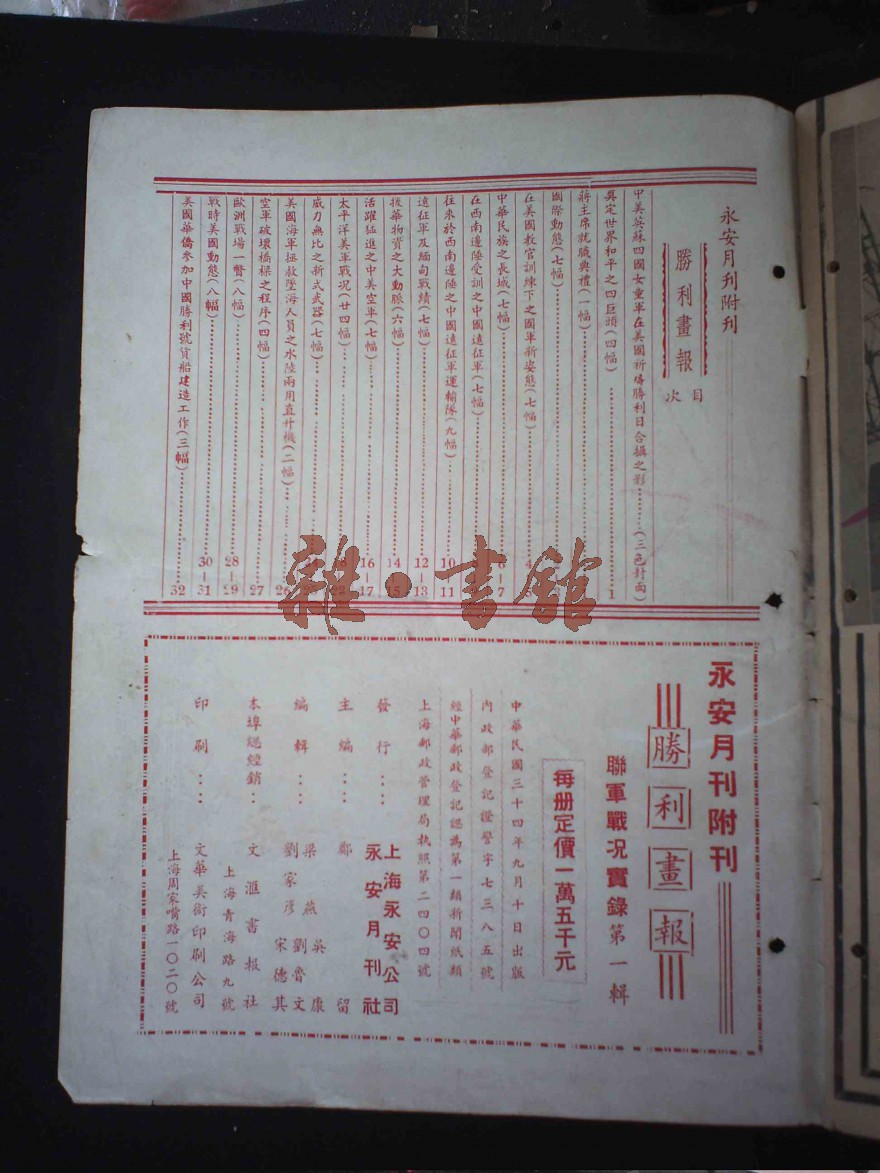 永安月刊附刊
勝利畫報
目次
中美英蘇四國女童軍在美國祈禱勝利日合攝之影……(三色封面)
奠定世界和平之四巨頭(四幅)……1
蔣主席就職典禮(一幅)……
國際動態(七幅)……
在美國教官訓練下之國軍新姿態(七幅)……4
中華民族之長城(七幅)……6—7
在西南邊陲受訓之中國遠征軍(七幅)……
往來於西南邊陲之中國遠征軍運輸隊(九幅)……10—11
遠征軍及緬甸戰績(七幅)……12—13
援華物資之大動脈(六幅)……14—15
活躍猛進之中美空軍(七幅)……16—17
太平洋美軍戰況(廿四幅)……18—22
威力無比之新式武器(七幅)……24
美國海軍拯救墜海人員之水陸兩用直升機(二幅)……26
空軍破壞橋樑之程序(四幅)……27
歐洲戰場一瞥(八幅)……28—29
戰時美國動態(八幅)……30—31
美國華僑參加中國勝利號貨船建造工作(三幅)……32
雜·書館
永安月刊附刊
勝利畫報
聯軍戰況實錄第一輯
每册定價一萬五千元
中華民國三十四年九月十日出版
內政部登記證警字七三八五號
經中華郵政登記認為第一類新聞紙類
上海郵政管理局執照第二四〇四號
發行…上海永安公司
永安月刊社
主編…鄭留
編輯…梁燕 吳康
劉家彦 劉魯文
宋德其
本埠總經銷…文滙書报社
上海青海路九號
印刷…文華美術印刷公司
上海周家嘴路一〇二〇號